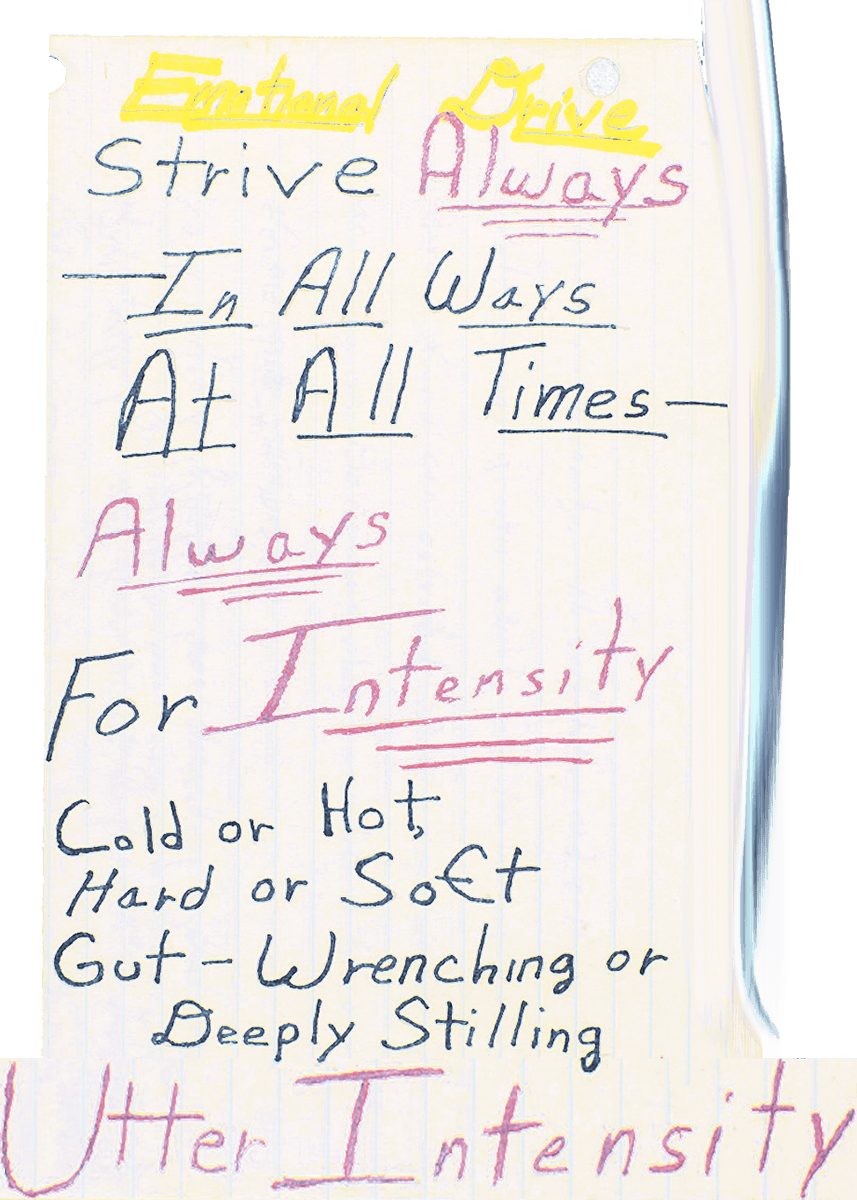 Emotional Drive
Strive Always
—In All Ways
At All Times—
Always
For Intensity
Cold or Hot,
Hard or Soft
Gut-Wrenching or
Deeply Stilling
Utter Intensity